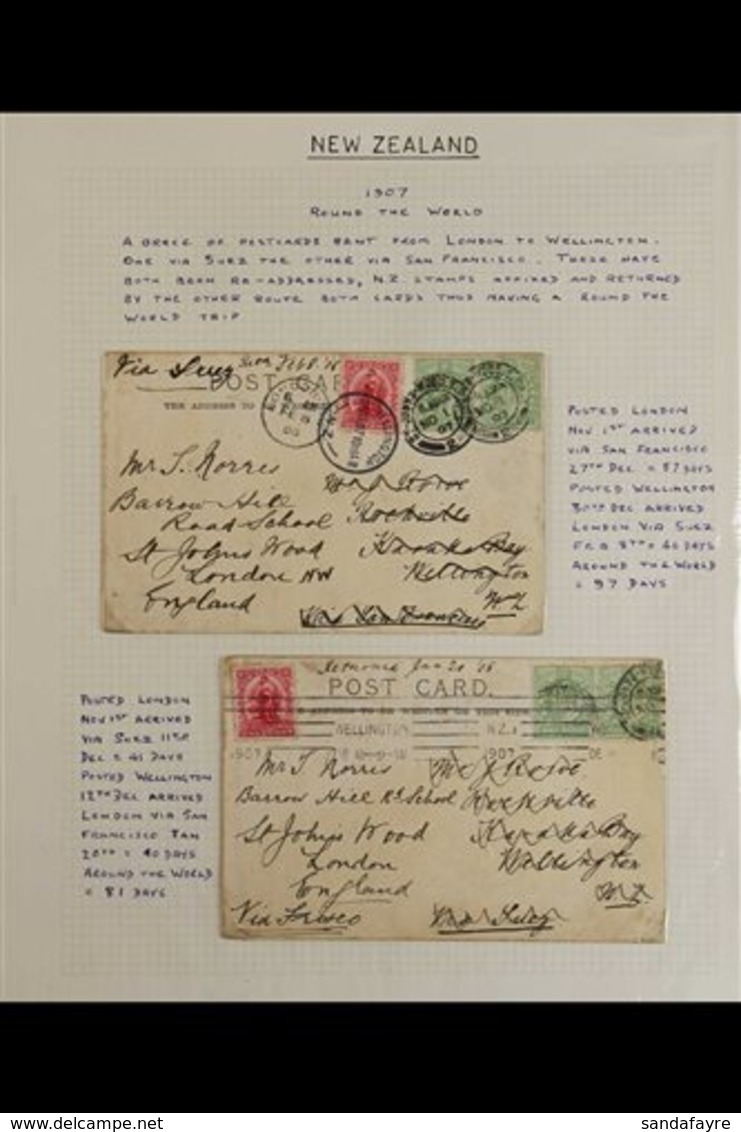 NEW ZEALAND
1907
ROUND THE WORLD
A BRACE OF POSTCARDS SENT FROM LONDON TO WELLINGTON.
ONE VIA SUEZ THE OTHER VIA SAN FRANCISCO. THESE HAVE
BOTH BEEN RE-ADDRESSED, N.Z. STAMPS AFFIXED AND RETURNED
BY THE OTHER ROUTE BOTH CARDS THUS MAKING A ROUND THE
WORLD TRIP
Via Suez
POST CAR
THE ADDRESS TO
Mr T. Norris
Barrow Hill
Road School
St Johns Wood
London NW
England
Karaka Bay
Wellington
NZ
Via San Francisco
POSTED LONDON
NOV 1ST ARRIVED
VIA SAN FRANCISCO
27TH DEC = 57 DAYS
POSTED WELLINGTON
30TH DEC ARRIVED
LONDON VIA SUEZ
FEB 8TH = 40 DAYS
AROUND THE WORLD
= 97 DAYS
POSTED LONDON
NOV 1ST ARRIVED
VIA SUEZ 11TH
DEC = 41 DAYS
POSTED WELLINGTON
12TH DEC ARRIVED
LONDON VIA SAN
FRANCISCO JAN
20TH = 40 DAYS
AROUND THE WORLD
= 81 DAYS
POST CARD.
WELLINGTON N.Z.
1907 1907 DE
Mr T Norris
Barrow Hill Rd School
St John's Wood
London
England
Via Frisco
Karaka Bay
Wellington
NZ
Via Suez
delcampe.net
sandafayre